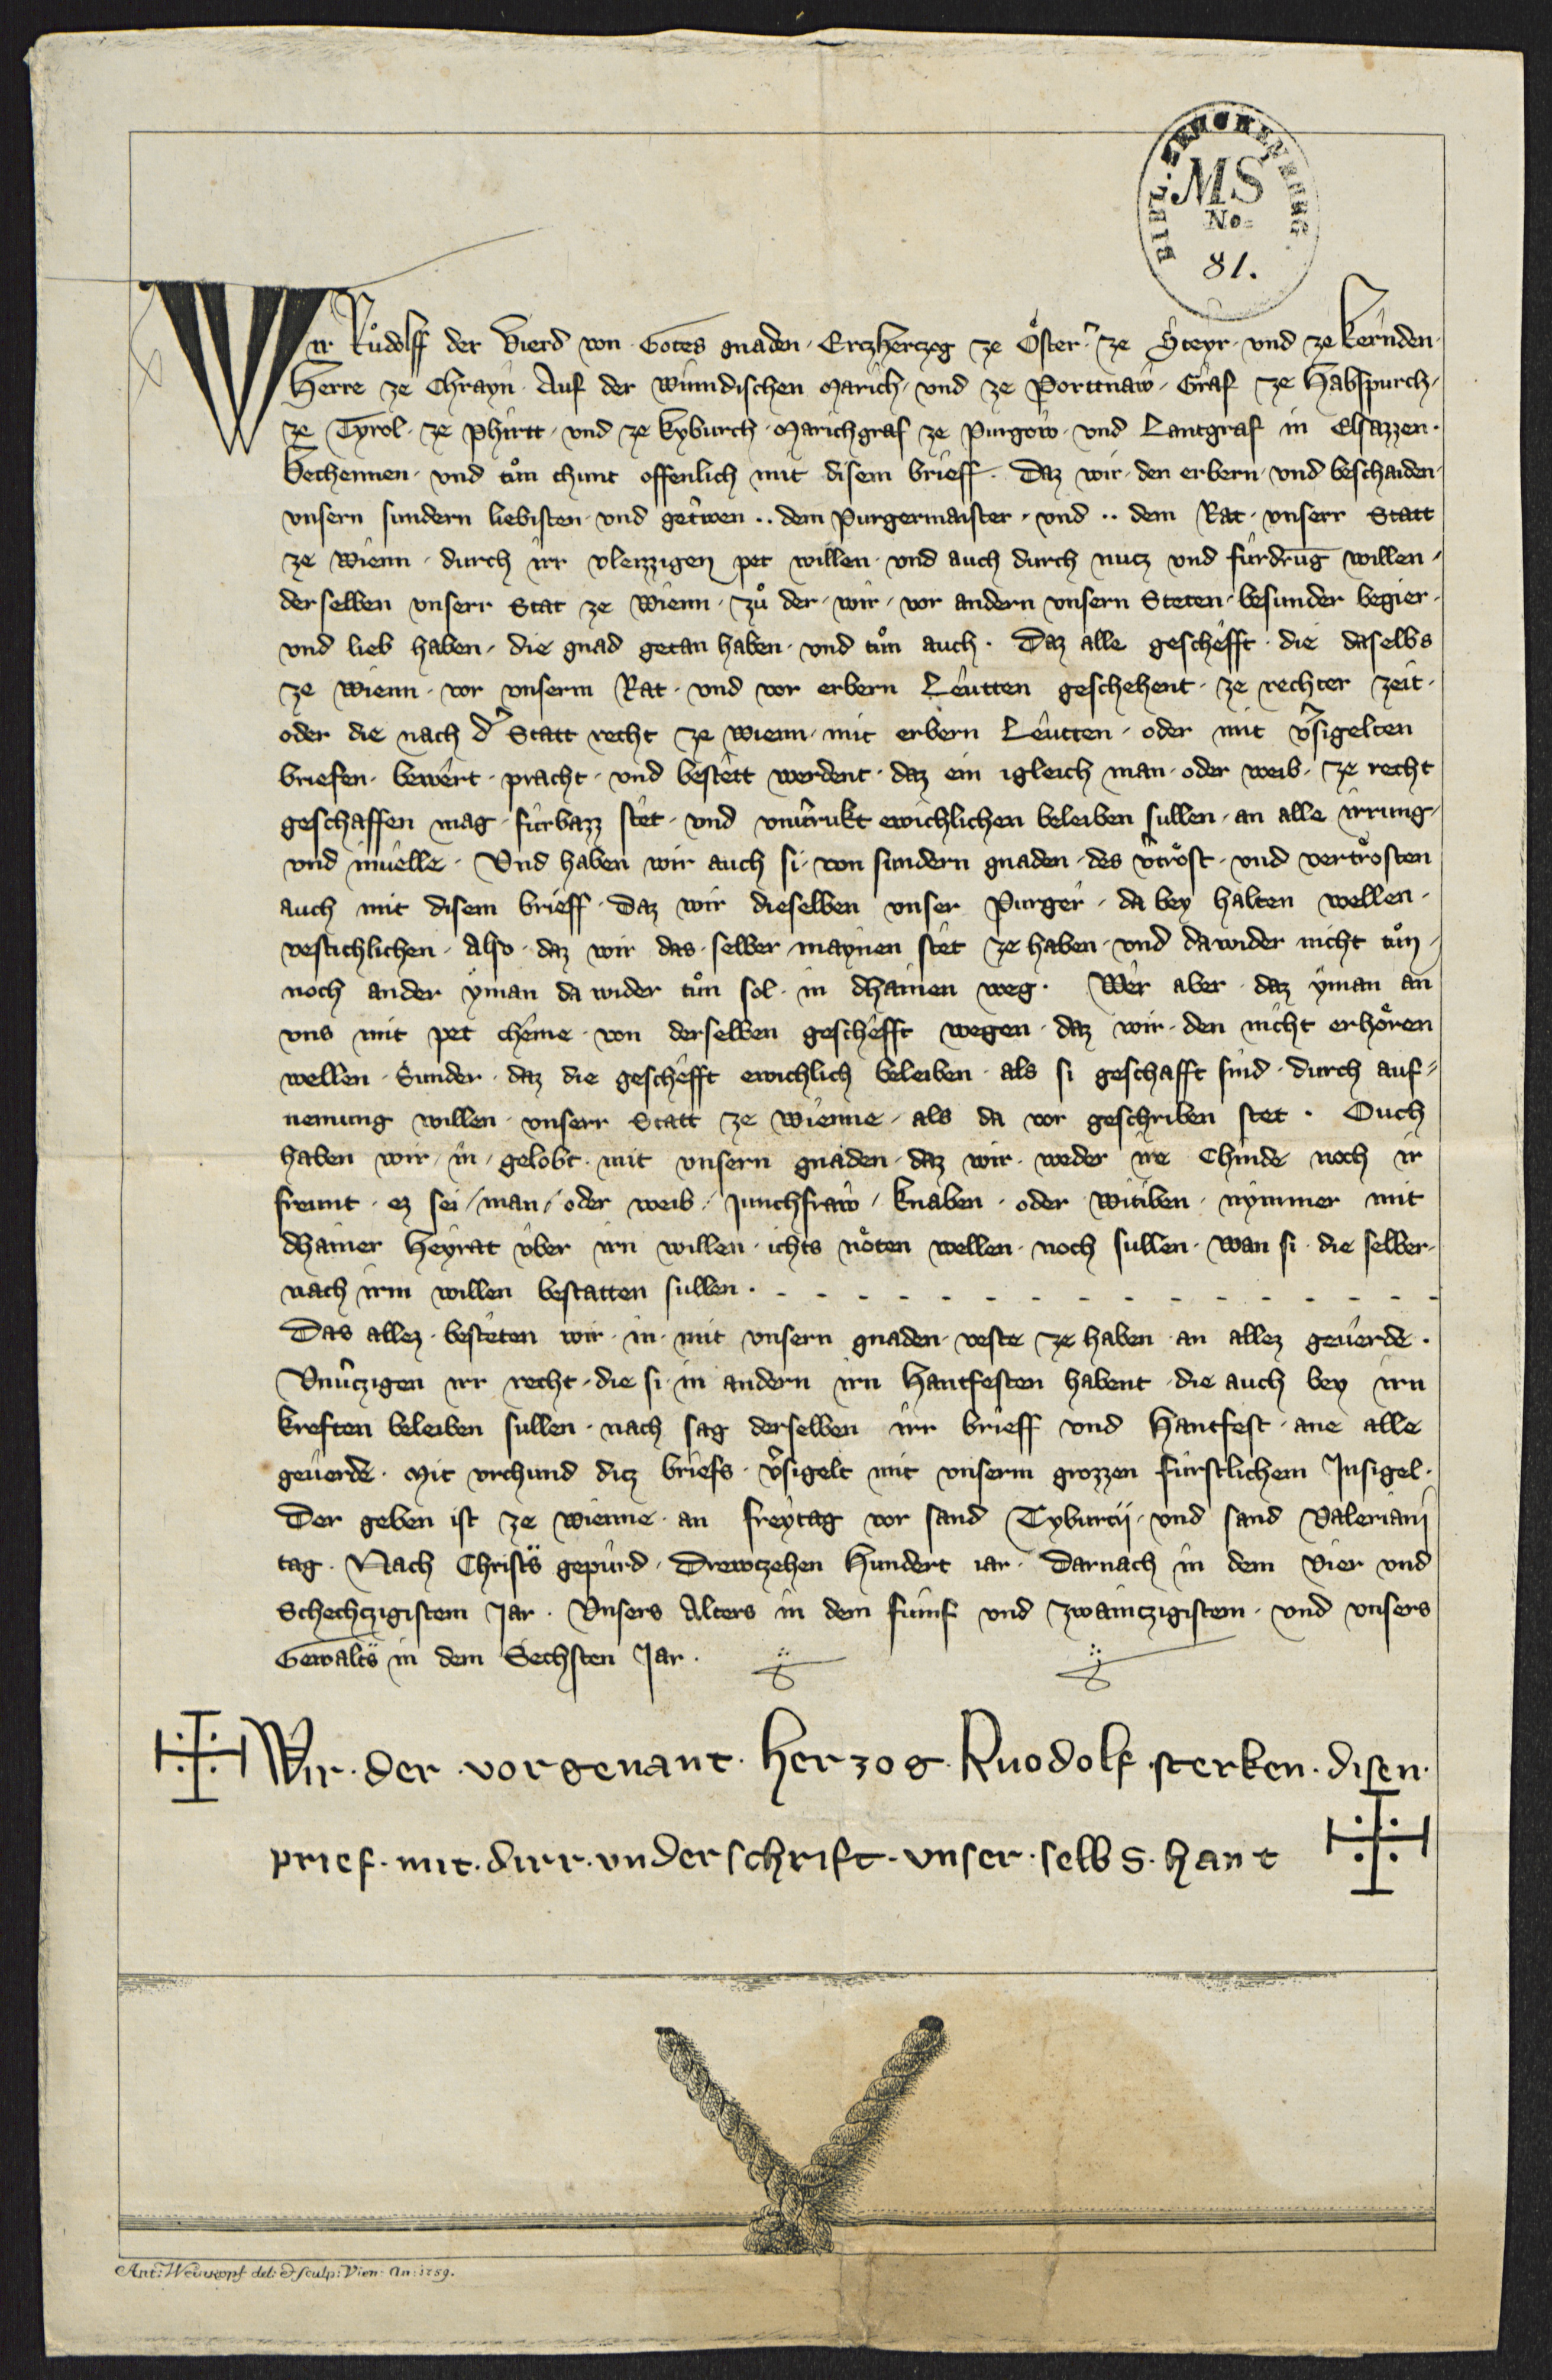 BIBL. ZENONENSIS.
MS
No=
81.
Wir Růdolff der Vierd von Gotes gnaden · Erczherczog ze Öster̄ · ze Steyr · und ze Kernden ·
Herre ze Chrayn · Auf der Windischen Marich · und ze Porttnaw · Graf ze Habspurch ·
ze Tyrol · ze Phirtt · und ze Kyburch · Marichgraf ze Purgow · und Lantgraf in Elsazzen ·
Bechennen · und tůn chunt offenlich mit disem brieff · Daz wir · den erbern · und beschaiden ·
unsern sundern liebisten · und getiwen ·· dem Purgermaister · und ·· dem Rat · unserr Statt
ze Wienn · durch irr vleizzigen pet willen · und auch durch nucz und fürdrūg willen ·
derselben unserr Stat ze Wienn · zů der · wir · vor andern unsern Steten · besunder begier ·
und lieb haben · die gnad getan haben · und tůn auch · Daz alle geschefft · die daselbs
ze Wienn · vor unserm Rat · und vor erbern Leutten geschehent · ze rechter zeit ·
oder die nach d̄ Statt recht ze Wienn · mit erbern Leutten · oder mit v̄sigelten
briefen · bewert · pracht · und bestett werdent · daz ein igleich man · oder weib · ze recht
geschaffen mag · fürbazz stet · und unv̄rukt ewichlichen beleiben sullen · an alle irrung ·
und inuelle · Und haben wir auch si · von sundern gnaden · des v̄tröst · und vertrösten
auch mit disem brieff · Daz wir dieselben unser Purger · da bey halten wellen ·
vestichlichen · Also · daz wir das · selber maynen stet ze haben · und dawider nicht tůn ·
noch ander yman da wider tůn sol · in dhainen weg · Wer aber · daz yman an
uns mit pet cheme · von derselben geschefft wegen · daz wir · den nicht erhören
wellen · Sunder · daz die geschefft ewichlich beleiben · als si geschafft sind · durch auf=
nemung willen · unserr Statt ze Wienne · als da vor geschriben stet · Ouch
haben wir · in · gelobt · mit unsern gnaden · daz wir · weder ire Chinde noch ir
freunt · ez sei / man / oder weib · Junchfraw / knaben · oder Witiben · nymmer mit
dhainer Heyrat über irn willen · ichts nöten wellen · noch sullen · wan si · die selber ·
nach irm willen bestatten sullen · - - - - - - - - - - - - - - - -
Das allez · besteten wir · in · mit unsern gnaden · veste ze haben · an allez geuerde ·
Unv̄czigen irr recht · die si · in andern irn Hantfesten habent · die auch bey irn
kreften beleiben sullen · nach sag derselben irr brieff und Hantfest · ane alle
geuerde · Mit urchund dicz briefs · v̄sigelt mit unserm grozzen fürstlichem Insigel ·
Der geben ist ze Wienne · an freytag vor sand Tyburcii · und sand Valeriani
tag · Nach Christs gepurd · Drewczehen Hundert iar · Darnach in dem Vier und
Schechczigistem Jar · Unsers Alters in dem fümf und zwainczigistem · und unsers
Gewalts in dem Sechsten Jar ·
Wir · der · vorgenant · Herzog · Ruodolf · sterken · disen ·
prief · mit · dirr · underschrift · unser · selbs · hant
Ant: Weinkopf del: & sculp: Vien: An: 1759.